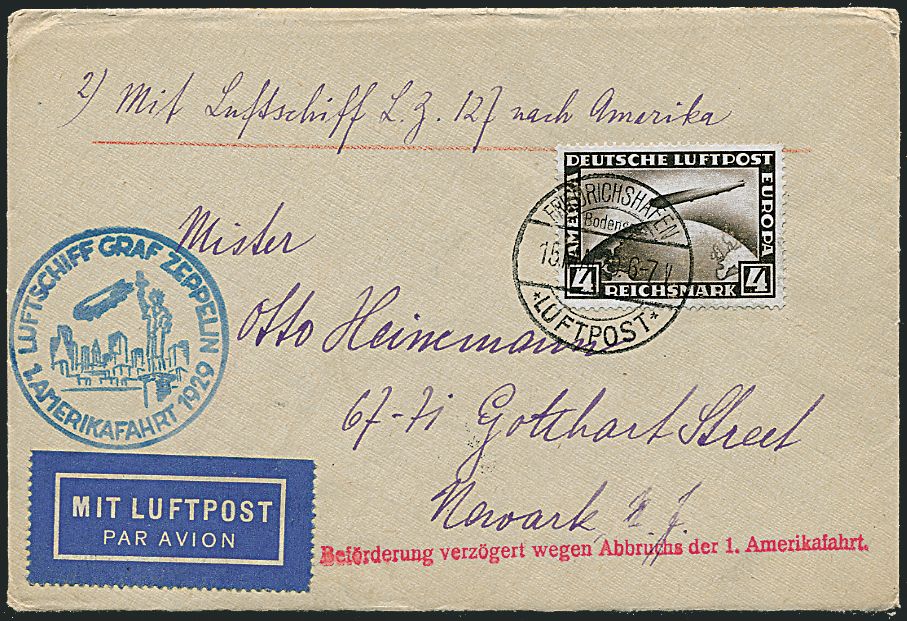 2) Mit Luftschiff L. Z. 127 nach Amerika
DEUTSCHE LUFTPOST
AMERIKA
EUROPA
4 REICHSMARK 4
FRIEDRICHSHAFEN
6-7 V
*LUFTPOST*
Mister
Otto Heinemann
67-71 Gotthart Street
Newark N. J.
LUFTSCHIFF GRAF ZEPPELIN
1. AMERIKAFAHRT 1929
MIT LUFTPOST
PAR AVION
Beförderung verzögert wegen Abbruchs der 1. Amerikafahrt.